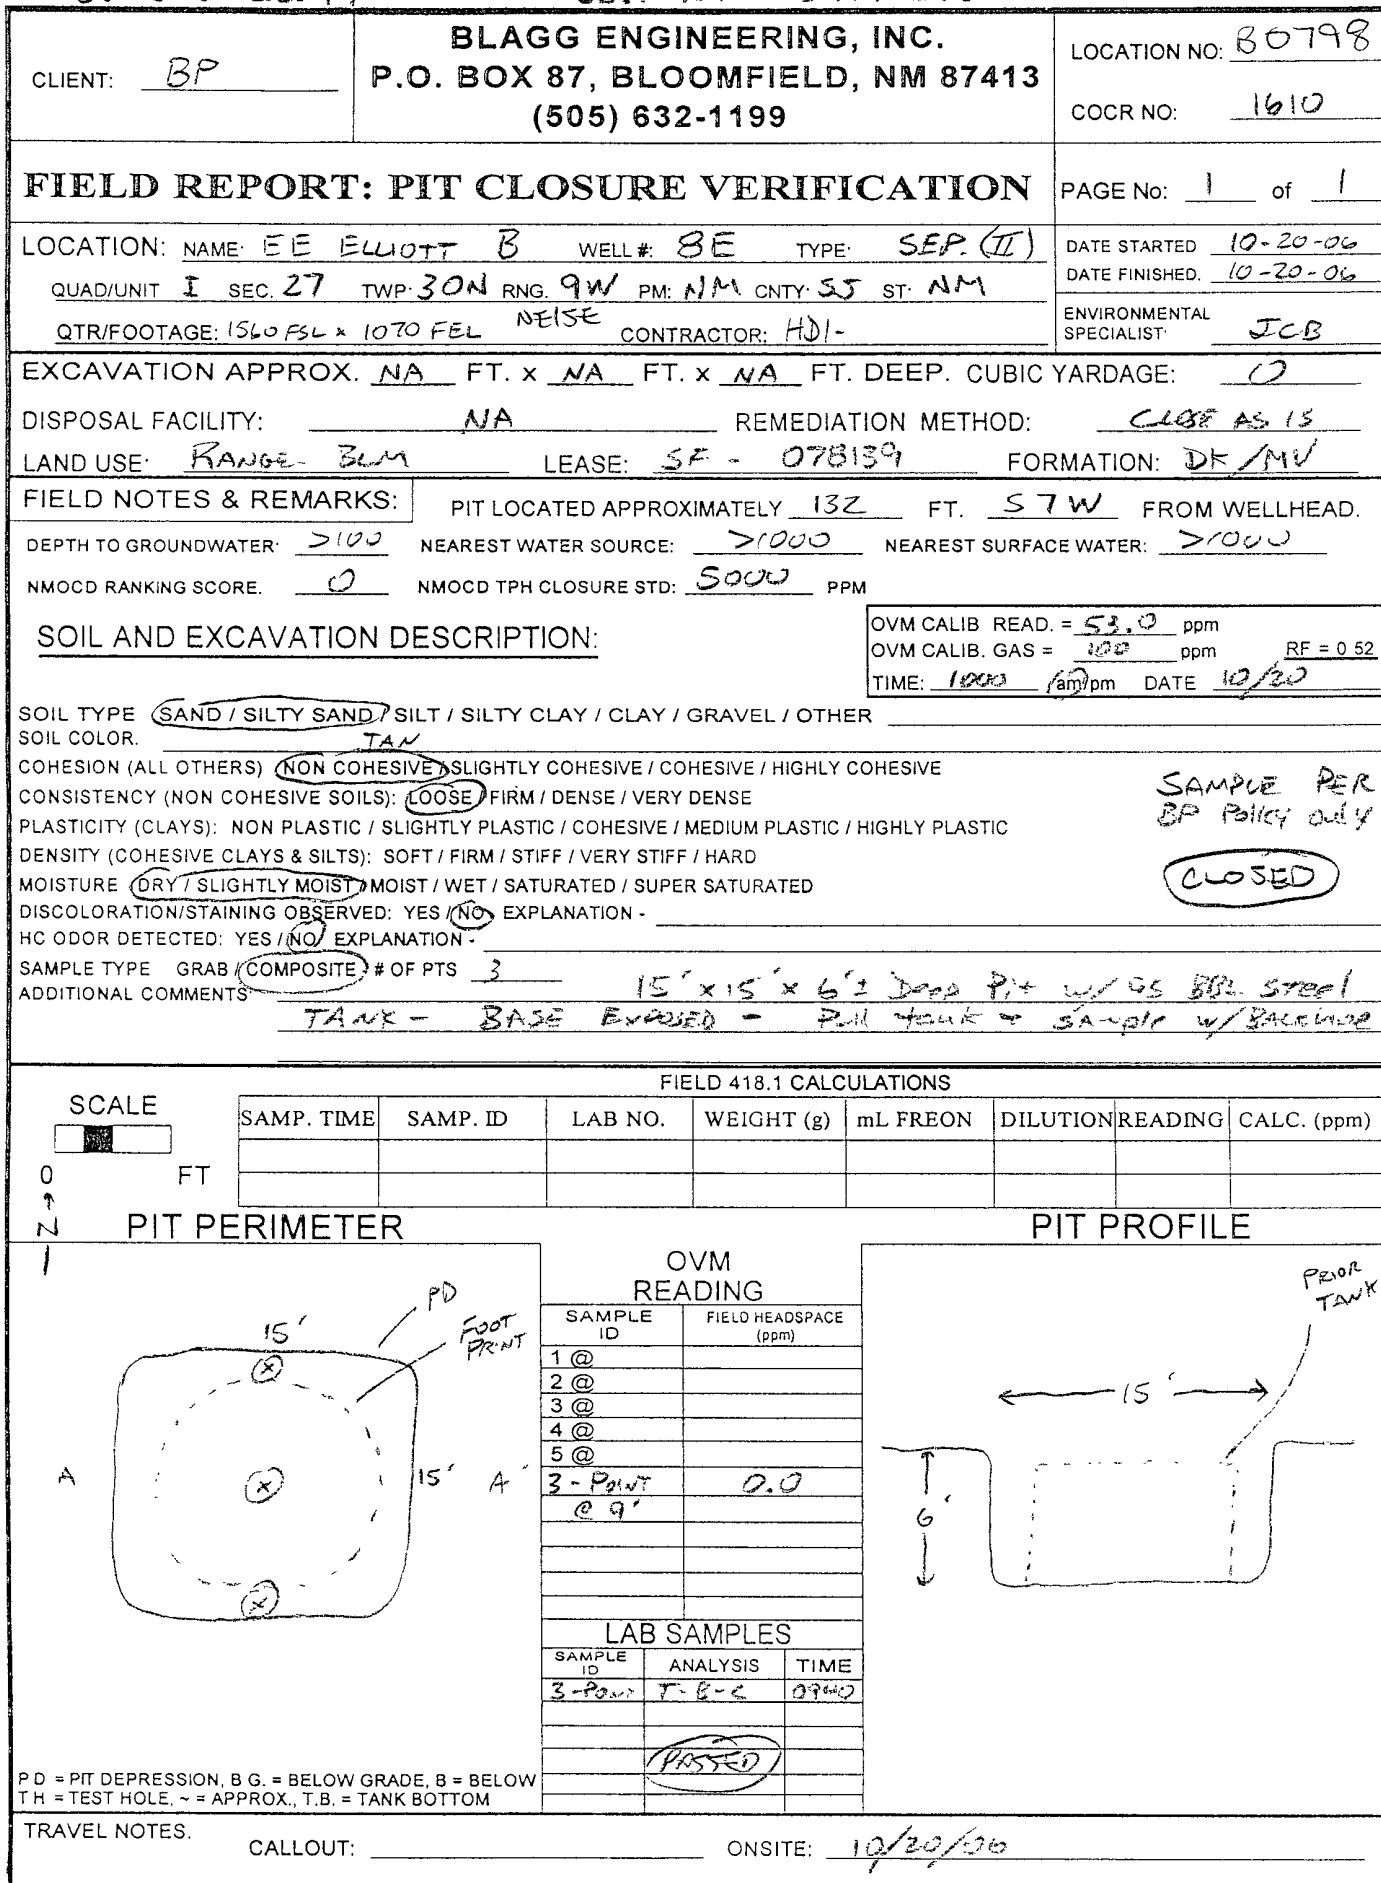 BLAGG ENGINEERING, INC.
P.O. BOX 87, BLOOMFIELD, NM 87413
(505) 632-1199
CLIENT: BP
LOCATION NO: B0798
COCR NO: 1610
FIELD REPORT: PIT CLOSURE VERIFICATION
PAGE No: 1 of 1
LOCATION: NAME: EE ELLIOTT B WELL #: 8E TYPE: SEP. (II)
QUAD/UNIT I SEC. 27 TWP: 30N RNG. 9W PM: NM CNTY: SJ ST: NM
QTR/FOOTAGE: 1560 FSL x 1070 FEL NE/SE CONTRACTOR: HDI-
DATE STARTED 10-20-06
DATE FINISHED. 10-20-06
ENVIRONMENTAL
SPECIALIST: JCB
EXCAVATION APPROX. NA FT. x NA FT. x NA FT. DEEP. CUBIC YARDAGE: 0
DISPOSAL FACILITY: NA REMEDIATION METHOD: CLOSE AS IS
LAND USE: RANGE - BLM LEASE: SF - 078139 FORMATION: DK/MV
FIELD NOTES & REMARKS: PIT LOCATED APPROXIMATELY 132 FT. S 7 W FROM WELLHEAD.
DEPTH TO GROUNDWATER: >100 NEAREST WATER SOURCE: >1000 NEAREST SURFACE WATER: >1000
NMOCD RANKING SCORE. 0 NMOCD TPH CLOSURE STD: 5000 PPM
SOIL AND EXCAVATION DESCRIPTION:
OVM CALIB READ. = 53.0 ppm
OVM CALIB. GAS = 100 ppm RF = 0 52
TIME: 1000 am/pm DATE 10/20
SOIL TYPE SAND / SILTY SAND / SILT / SILTY CLAY / CLAY / GRAVEL / OTHER
SOIL COLOR. TAN
COHESION (ALL OTHERS) NON COHESIVE / SLIGHTLY COHESIVE / COHESIVE / HIGHLY COHESIVE
CONSISTENCY (NON COHESIVE SOILS): LOOSE / FIRM / DENSE / VERY DENSE
PLASTICITY (CLAYS): NON PLASTIC / SLIGHTLY PLASTIC / COHESIVE / MEDIUM PLASTIC / HIGHLY PLASTIC
DENSITY (COHESIVE CLAYS & SILTS): SOFT / FIRM / STIFF / VERY STIFF / HARD
MOISTURE DRY / SLIGHTLY MOIST / MOIST / WET / SATURATED / SUPER SATURATED
DISCOLORATION/STAINING OBSERVED: YES / NO EXPLANATION -
HC ODOR DETECTED: YES / NO EXPLANATION -
SAMPLE TYPE GRAB / COMPOSITE # OF PTS 3
SAMPLE PER
BP Policy only
CLOSED
ADDITIONAL COMMENTS 15' x 15' x 6'± Deep Pit w/ 95 BBL STEEL
TANK - BASE EXPOSED - Pull tank + SAmple w/ BACKHOE
FIELD 418.1 CALCULATIONS
SCALE
0 FT
SAMP. TIME SAMP. ID LAB NO. WEIGHT (g) mL FREON DILUTION READING CALC. (ppm)
N
PIT PERIMETER
PD
FOOT
PRINT
15'
A 15' A'
OVM
READING
SAMPLE
ID
FIELD HEADSPACE
(ppm)
1 @
2 @
3 @
4 @
5 @
3 - POINT 0.0
@ 9'
LAB SAMPLES
SAMPLE
ID
ANALYSIS TIME
3-POINT T-B-C 0940
PASSED
PIT PROFILE
PRIOR
TANK
15'
6'
P D = PIT DEPRESSION, B G. = BELOW GRADE, B = BELOW
T H = TEST HOLE, ~ = APPROX., T.B. = TANK BOTTOM
TRAVEL NOTES.
CALLOUT: ONSITE: 10/20/06